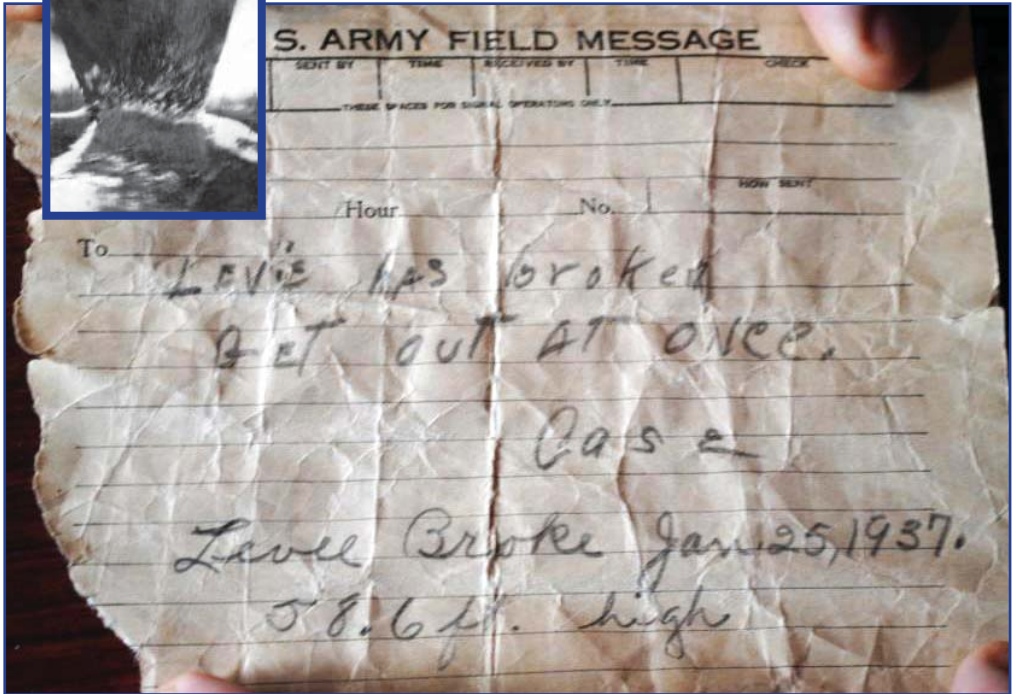 S. ARMY FIELD MESSAGE
SENT BY TIME RECEIVED BY TIME CHECK
THESE SPACES FOR SIGNAL OPERATORS ONLY
HOW SENT
Hour No.
To
LEVEE HAS broken
GET OUT AT ONCE.
Case
Levee Broke Jan. 25, 1937.
58.6 ft. high